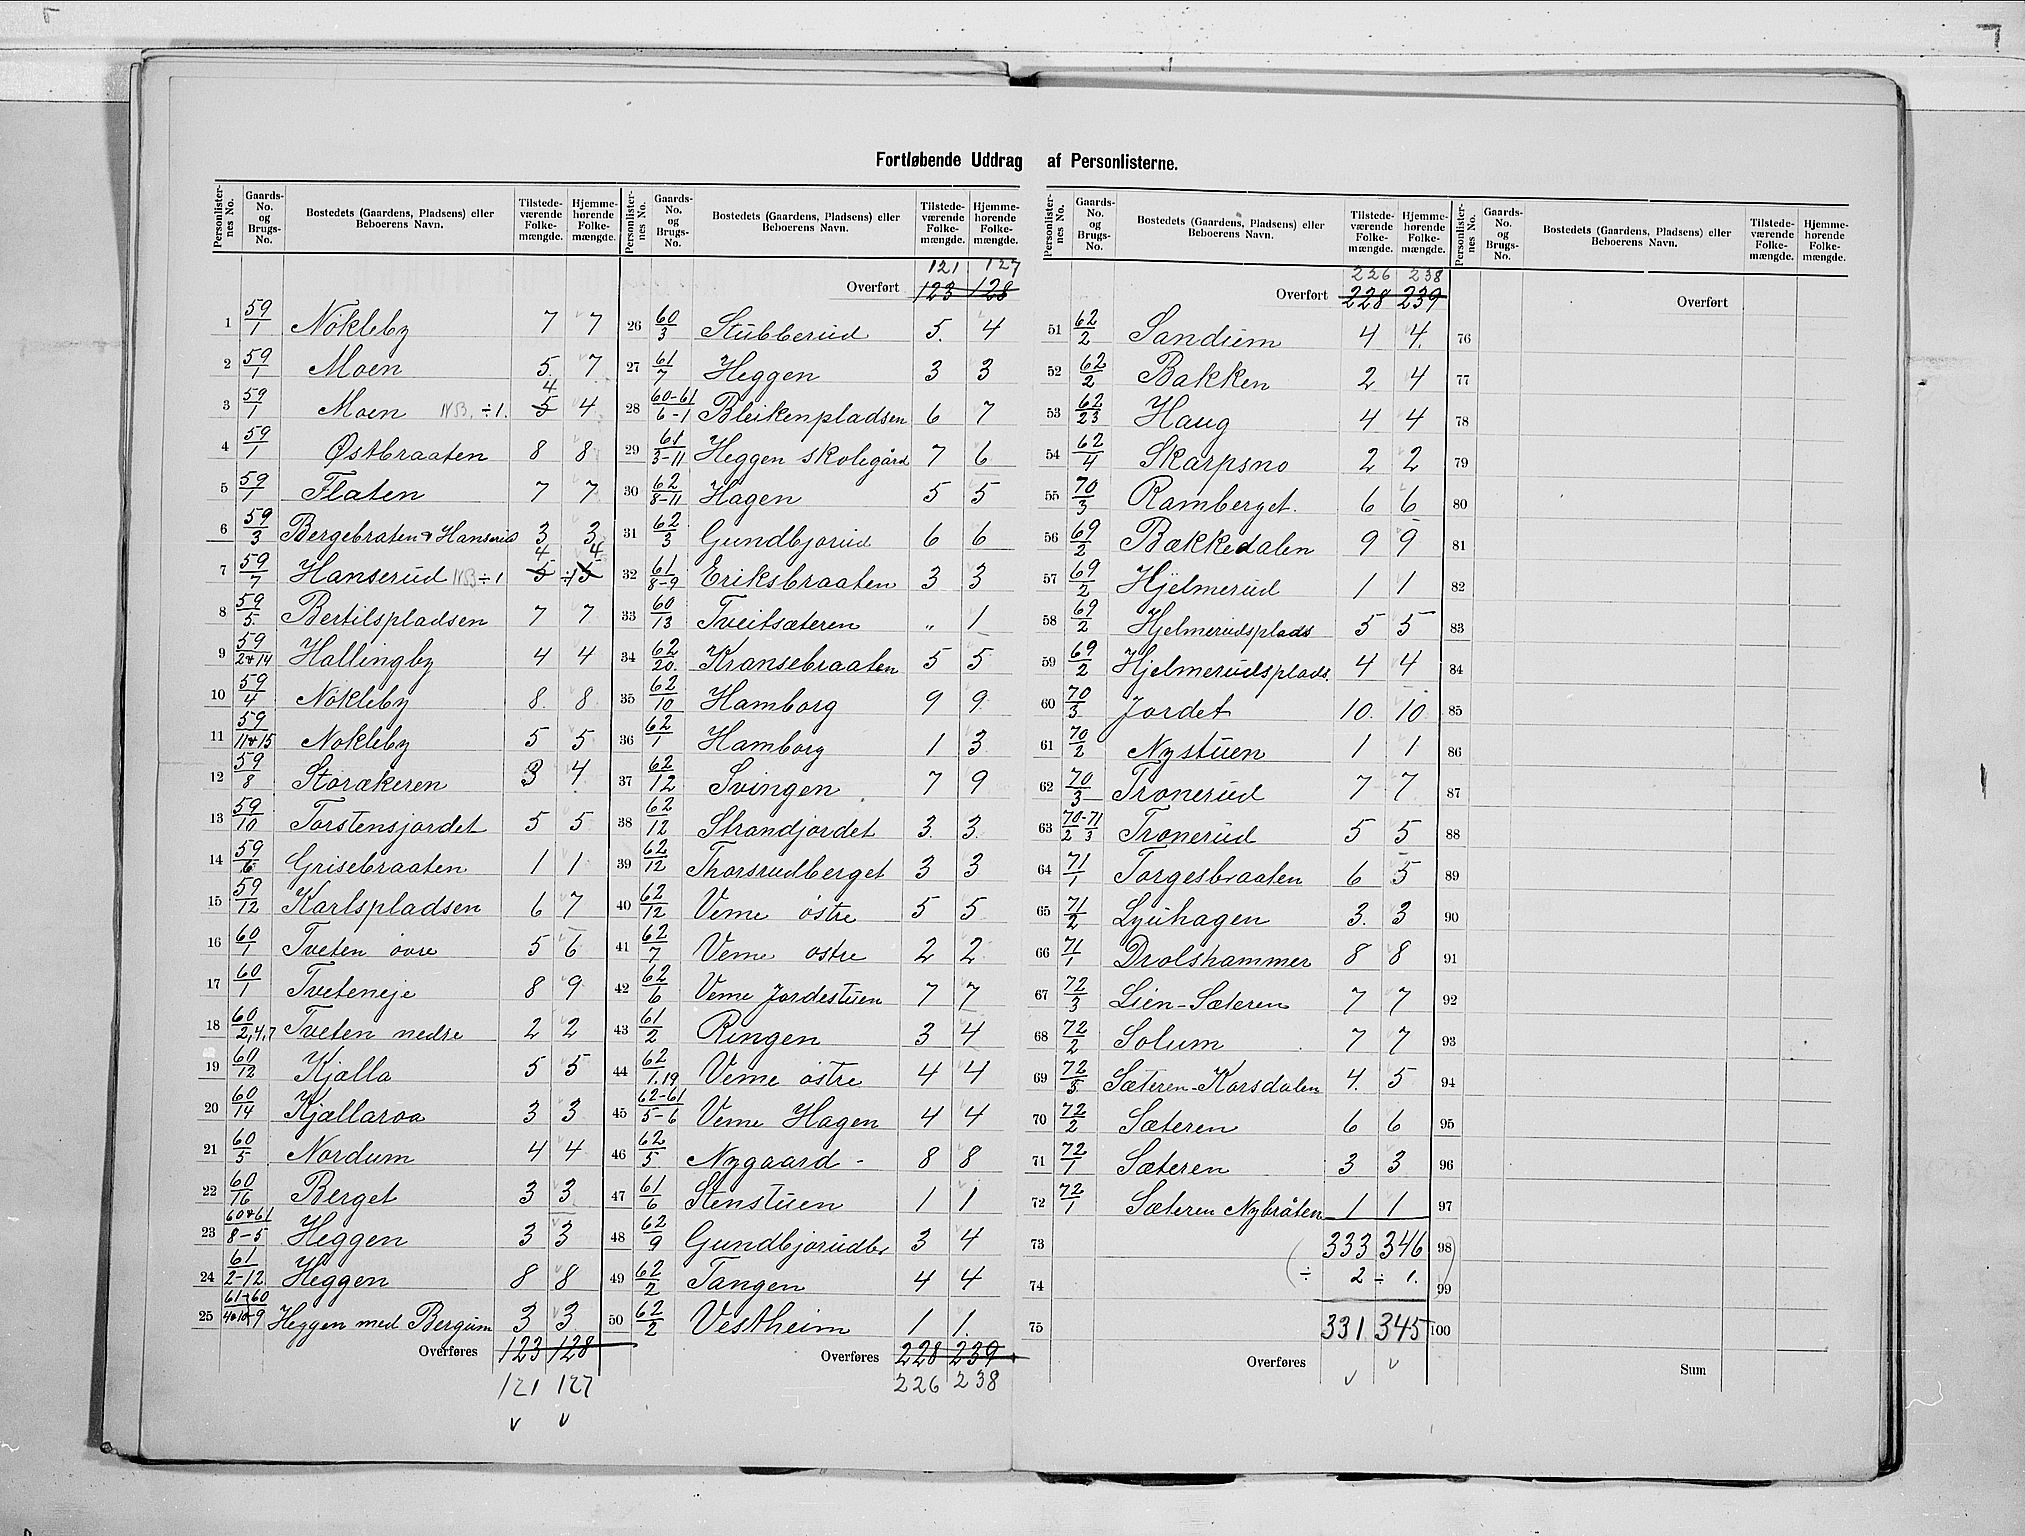 Fortløbende Uddrag af Personlisterne.
Personlister-nes No. | Gaards-No. og Brugs-No. | Bostedets (Gaardens, Pladsens) eller Beboerens Navn. | Tilstede-værende Folke-mængde. | Hjemme-hørende Folke-mængde.
1 59/1 Nökleby 7 7
2 59/1 Moen 5. 7
3 59/1 Moen NB. ÷1. 5 4 4
4 59/1 Østbraaten 8 8
5 59/1 Flaten 7 7
6 59/3 Bergebraten & Hanserud 3 3
7 59/7 Hanserud NB ÷1 5 4 ÷1 5 4
8 59/5 Bertilspladsen 7 7
9 59/2&14 Hallingby 4 4
10 59/4 Nökleby 8. 8
11 59/11&15 Nökleby 5 5
12 59/8 Storækeren 3 4
13 59/10 Torstensjordet 5 5
14 59/6 Grisebraaten 1 1
15 59/12 Karlspladsen 6 7
16 60/1 Tveten övre 5 6
17 60/1 Tveteneje 8 9
18 60/2,4,7 Tveten nedre 2 2
19 60/12 Kjælla 5 5
20 60/14 Kjællaroa 3 3
21 60/5 Nordum 4 4
22 60/16 Berget 3 3
23 60&61/8-5 Heggen 3 3
24 61/2-12 Heggen 8 8
25 61+60/4&10+9 Heggen med Bergum 3 3
Overføres 123 128
121 127
v v
Personlister-nes No. | Gaards-No. og Brugs-No. | Bostedets (Gaardens, Pladsens) eller Beboerens Navn. | Tilstede-værende Folke-mængde. | Hjemme-hørende Folke-mængde.
121 127
Overført 123 128
26 60/3 Stubberud 5. 4
27 61/7 Heggen 3 3
28 60-61/6-1 Bleikenpladsen 6 7
29 61/3-11 Heggen skolegård 7 6
30 62/8-11 Hagen 5 5
31 62/3 Gundbjorud 6 6
32 61/8-9 Eriksbraaten 3 3
33 60/13 Tveitsæteren „ 1
34 62/20. Kransebraaten 5 5
35 62/10 Hamborg 9 9
36 62/1 Hamborg 1 3
37 62/12 Svingen 7 9
38 62/12 Strandjordet 3. 3.
39 62/12 Thorsrudberget 3 3
40 62/12 Veme östre 5 5
41 62/7 Veme östre 2 2
42 62/6 Veme Jordestuen 7 7
43 61/2 Ringen 3 4
44 62/1.19 Veme östre 4 4
45 62-61/5-6 Veme Hagen 4 4
46 62/5. Nygaard - 8 8
47 61/6 Stenstuen 1 1
48 62/9 Gundbjorudbr 3 4
49 62/2 Tangen 4 4
50 62/2 Vestheim 1 1.
Overføres 228 239
226 238
Personlister-nes No. | Gaards-No. og Brugs-No. | Bostedets (Gaardens, Pladsens) eller Beboerens Navn. | Tilstede-værende Folke-mængde. | Hjemme-hørende Folke-mængde.
226 238
Overført 228 239
51 62/2 Sandum 4 4.
52 62/2 Bakken 2 4
53 62/23 Haug 4 4
54 62/4 Skarpsno 2 2
55 70/3 Ramberget. 6 6
56 69/2 Bækkedalen 9 9
57 69/2 Hjelmerud 1 1
58 69/2 Hjelmerudsplads 5 5
59 69/2 Hjelmerudsplads. 4 4
60 70/3 Jordet 10. 10
61 70/2 Nystuen 1 1
62 70/3 Tronerud 7 7
63 70-71/2 3 Tronerud 5 5
64 71/1 Torgesbraaten 6 5
65 71/2 Lyuhagen 3. 3
66 71/1 Drolshammer 8 8
67 72/3 Lien-Sæteren 7 7
68 72/2 Solum 7 7
69 72/5 Sæteren-Korsdalen 4. 5
70 72/2 Sæteren 6 6
71 72/1 Sæteren 3 3
72 72/1 Sæteren Nybråten 1 1
73 (333 346)
74 ÷ 2 ÷ 1.
75 331 345
Overføres
v v
Personlister-nes No. | Gaards-No. og Brugs-No. | Bostedets (Gaardens, Pladsens) eller Beboerens Navn. | Tilstede-værende Folke-mængde. | Hjemme-hørende Folke-mængde.
Overført
76
77
78
79
80
81
82
83
84
85
86
87
88
89
90
91
92
93
94
95
96
97
98
99
100
Sum